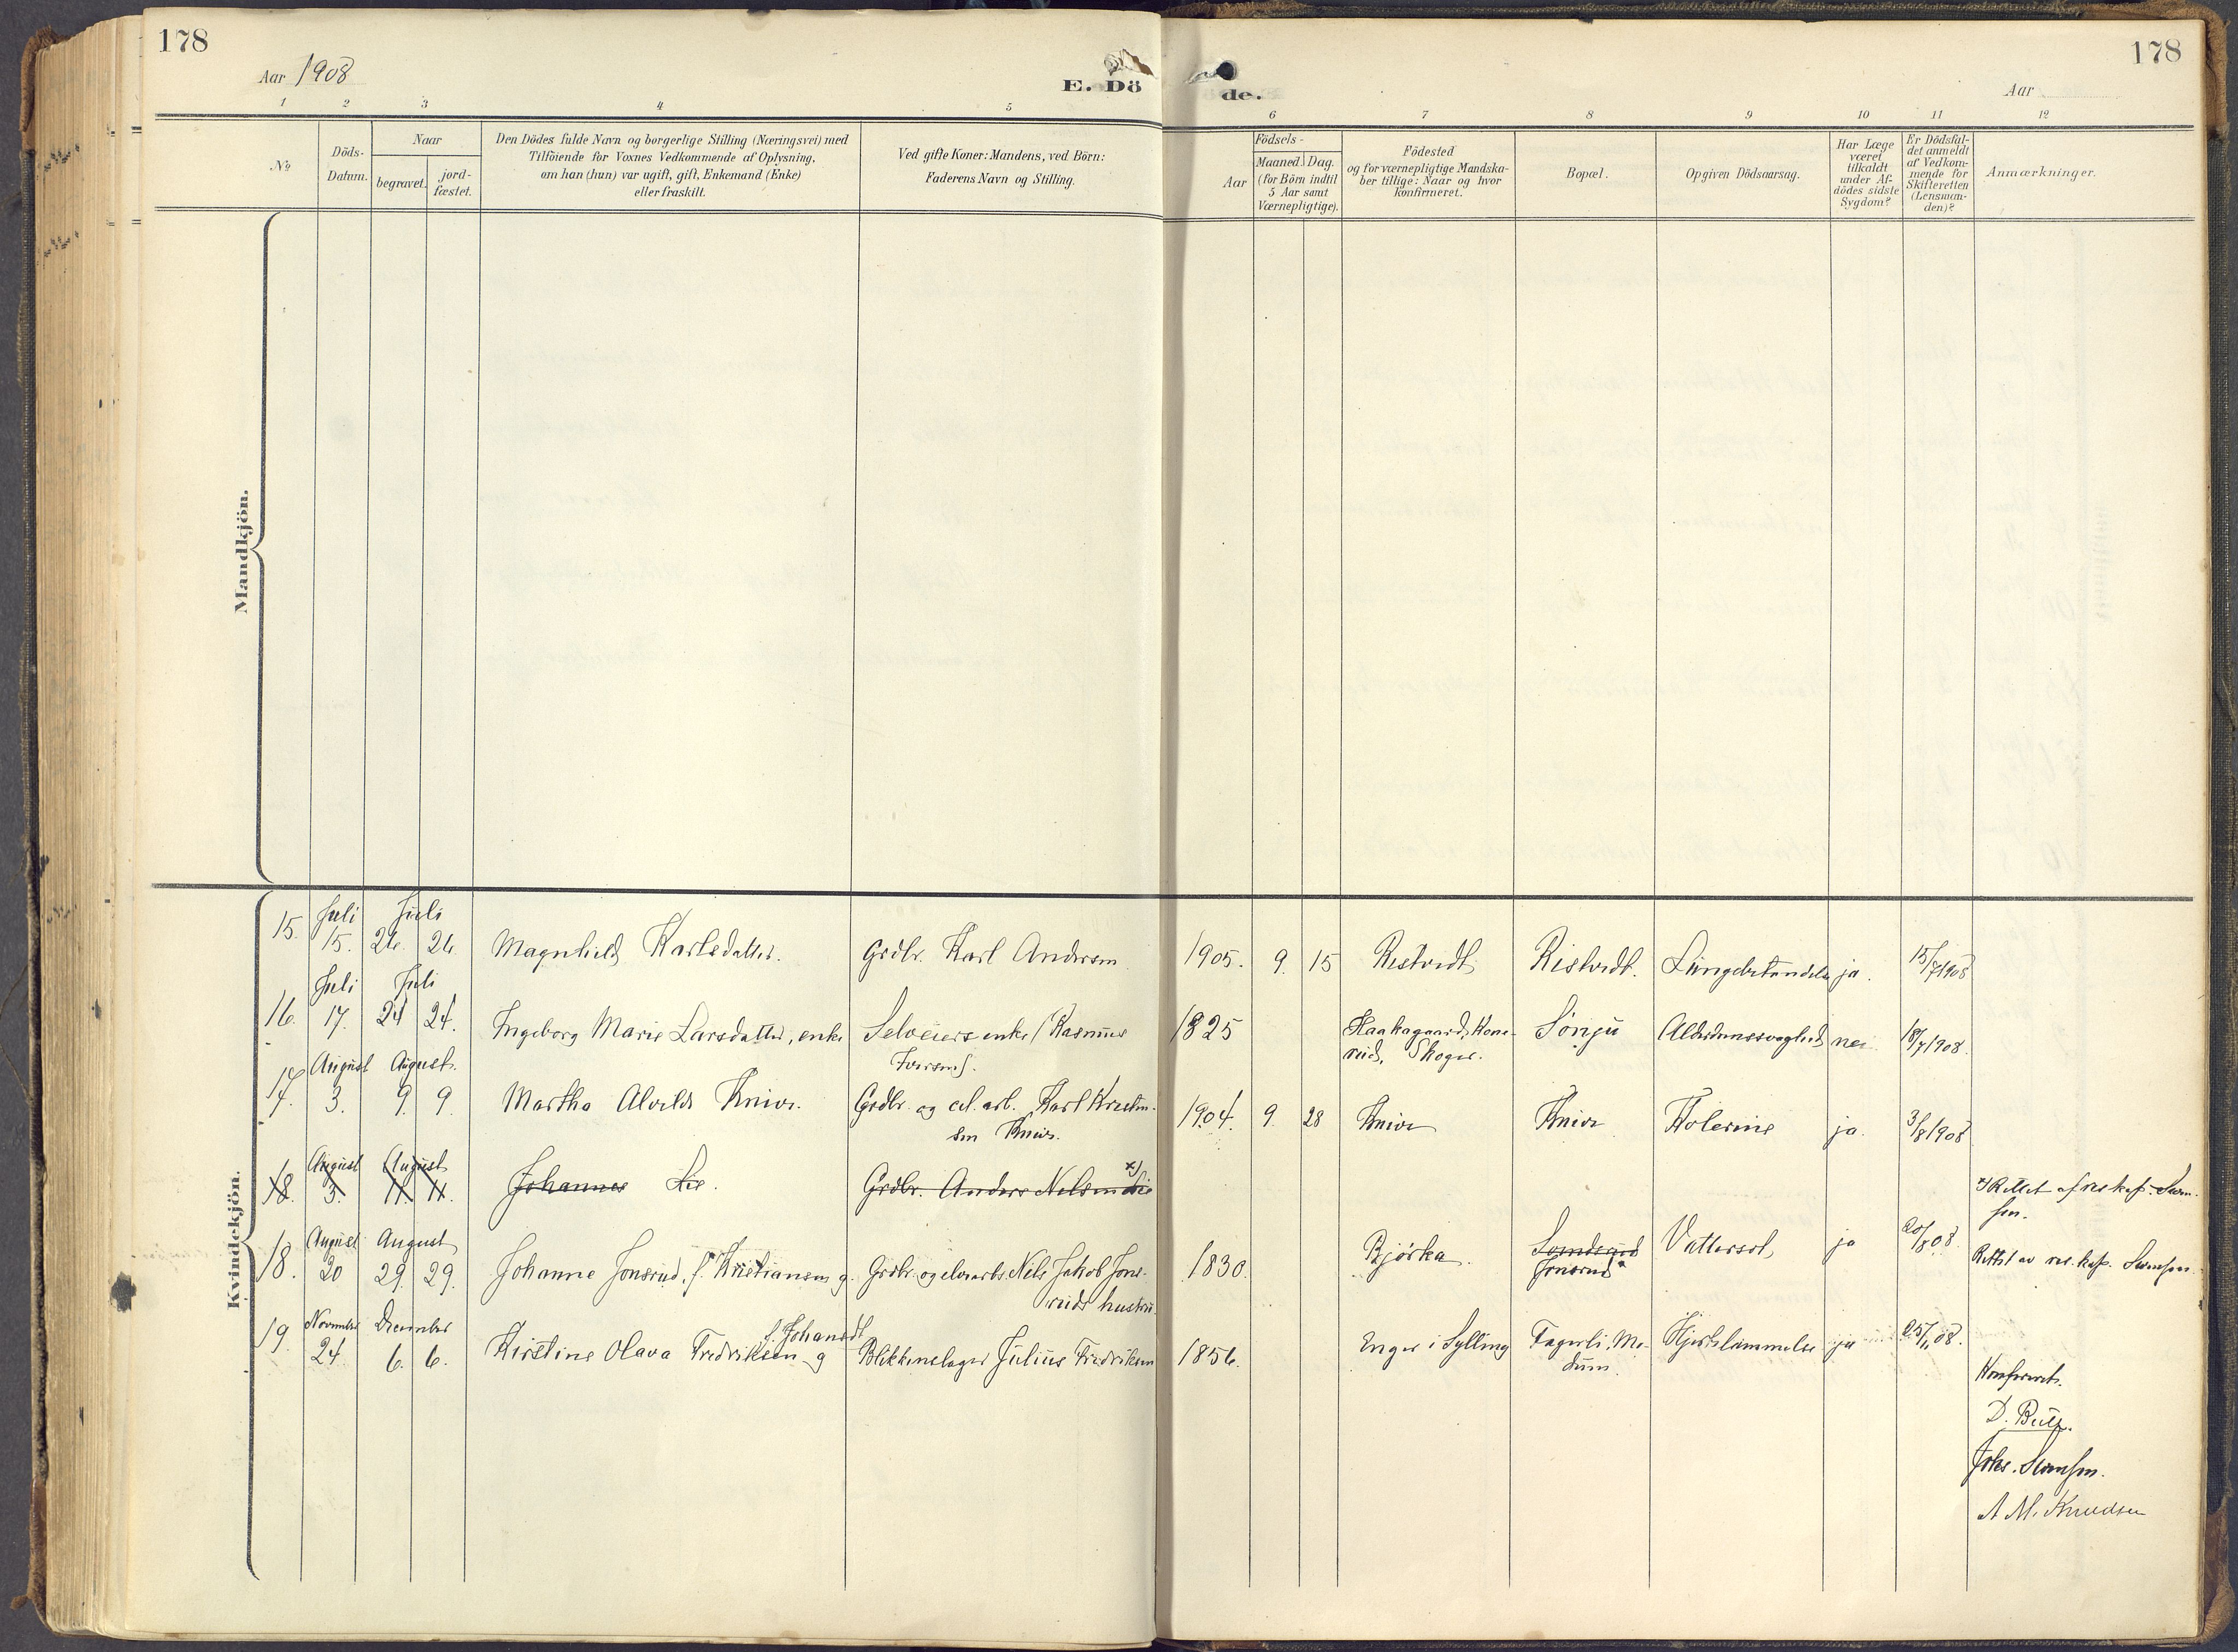 178
178
Aar 1908
E. Dö
de.
Aar
1 2 3 4 5 6 7 8 9 10 11 12
No
Döds-Datum.
Naar
begravet.
jord-fæstet.
Den Dödes fulde Navn og borgerlige Stilling (Næringsvei) med
Tilföiende for Voxnes Vedkommende af Oplysning,
om han (hun) var ugift, gift, Enkemand (Enke)
eller fraskilt.
Ved gifte Koner: Mandens, ved Börn:
Faderens Navn og Stilling.
Aar
Födsels-
Maaned. Dag.
(for Börn indtil
5 Aar samt
Værnepligtige).
Födested
og for værnepligtige Mandska-
ber tillige: Naar og hvor
konfirmeret.
Bopæl.
Opgiven Dödsaarsag.
Har Læge
været
tilkaldt
under Af-
dödes sidste
Sygdom?
Er Dödsfal-
det anmeldt
af Vedkom-
mende for
Skifteretten
(Lensman-
den)?
Anmærkninger.
Mandkjön.
Kvindekjön.
Juli Juli
15. 15. 26. 26. Magnhild Karlsdatter. Grdbr. Karl Andersen 1905. 9. 15 Ristvedt Ristvedt. Lungebetændelse ja. 15/7 1908
Juli Juli
16. 17. 24 24. Ingeborg Marie Larsdatter, enke Selveiers enke (Rasmus 1825 Sönju Alderdomssvaghed nei 18/7 1908.
Iversens). Skoger.
August August.
17. 3. 9. 9. Martha Alvilde Knive. Grdbr. og Karl Kristen- 1904. 9. 28 Knive Knive Kolerine ja. 3/8 1908
sen Knive.
August August
18. 3. 11. 11. Johannes Lie. Grdbr. Anders Nilsen Lie x) x) Rettet af res. kap. Svensen.
August August
18. 20 29. 29. Johanne Jonsrud, f. Kristiansen g. Grdbr. og elvearb. Nils Jakob Jons- 1830. Bjørka. Jonsrud Vattersot, ja 20/8 08. Rettet av res. kap. Svensen.
ruds hustru.
November December
f. Johansdt
19. 24. 6. 6. Kirstine Olava Fredriksen g Blikkenslager Julius Fredriksen 1856. Enger i Sylling Fagerli, Me- Hjertelammelse ja 25/11 08.
dum.
Konfereret.
D. Bull.
Johs. Svensen.
A. M. Knudsen